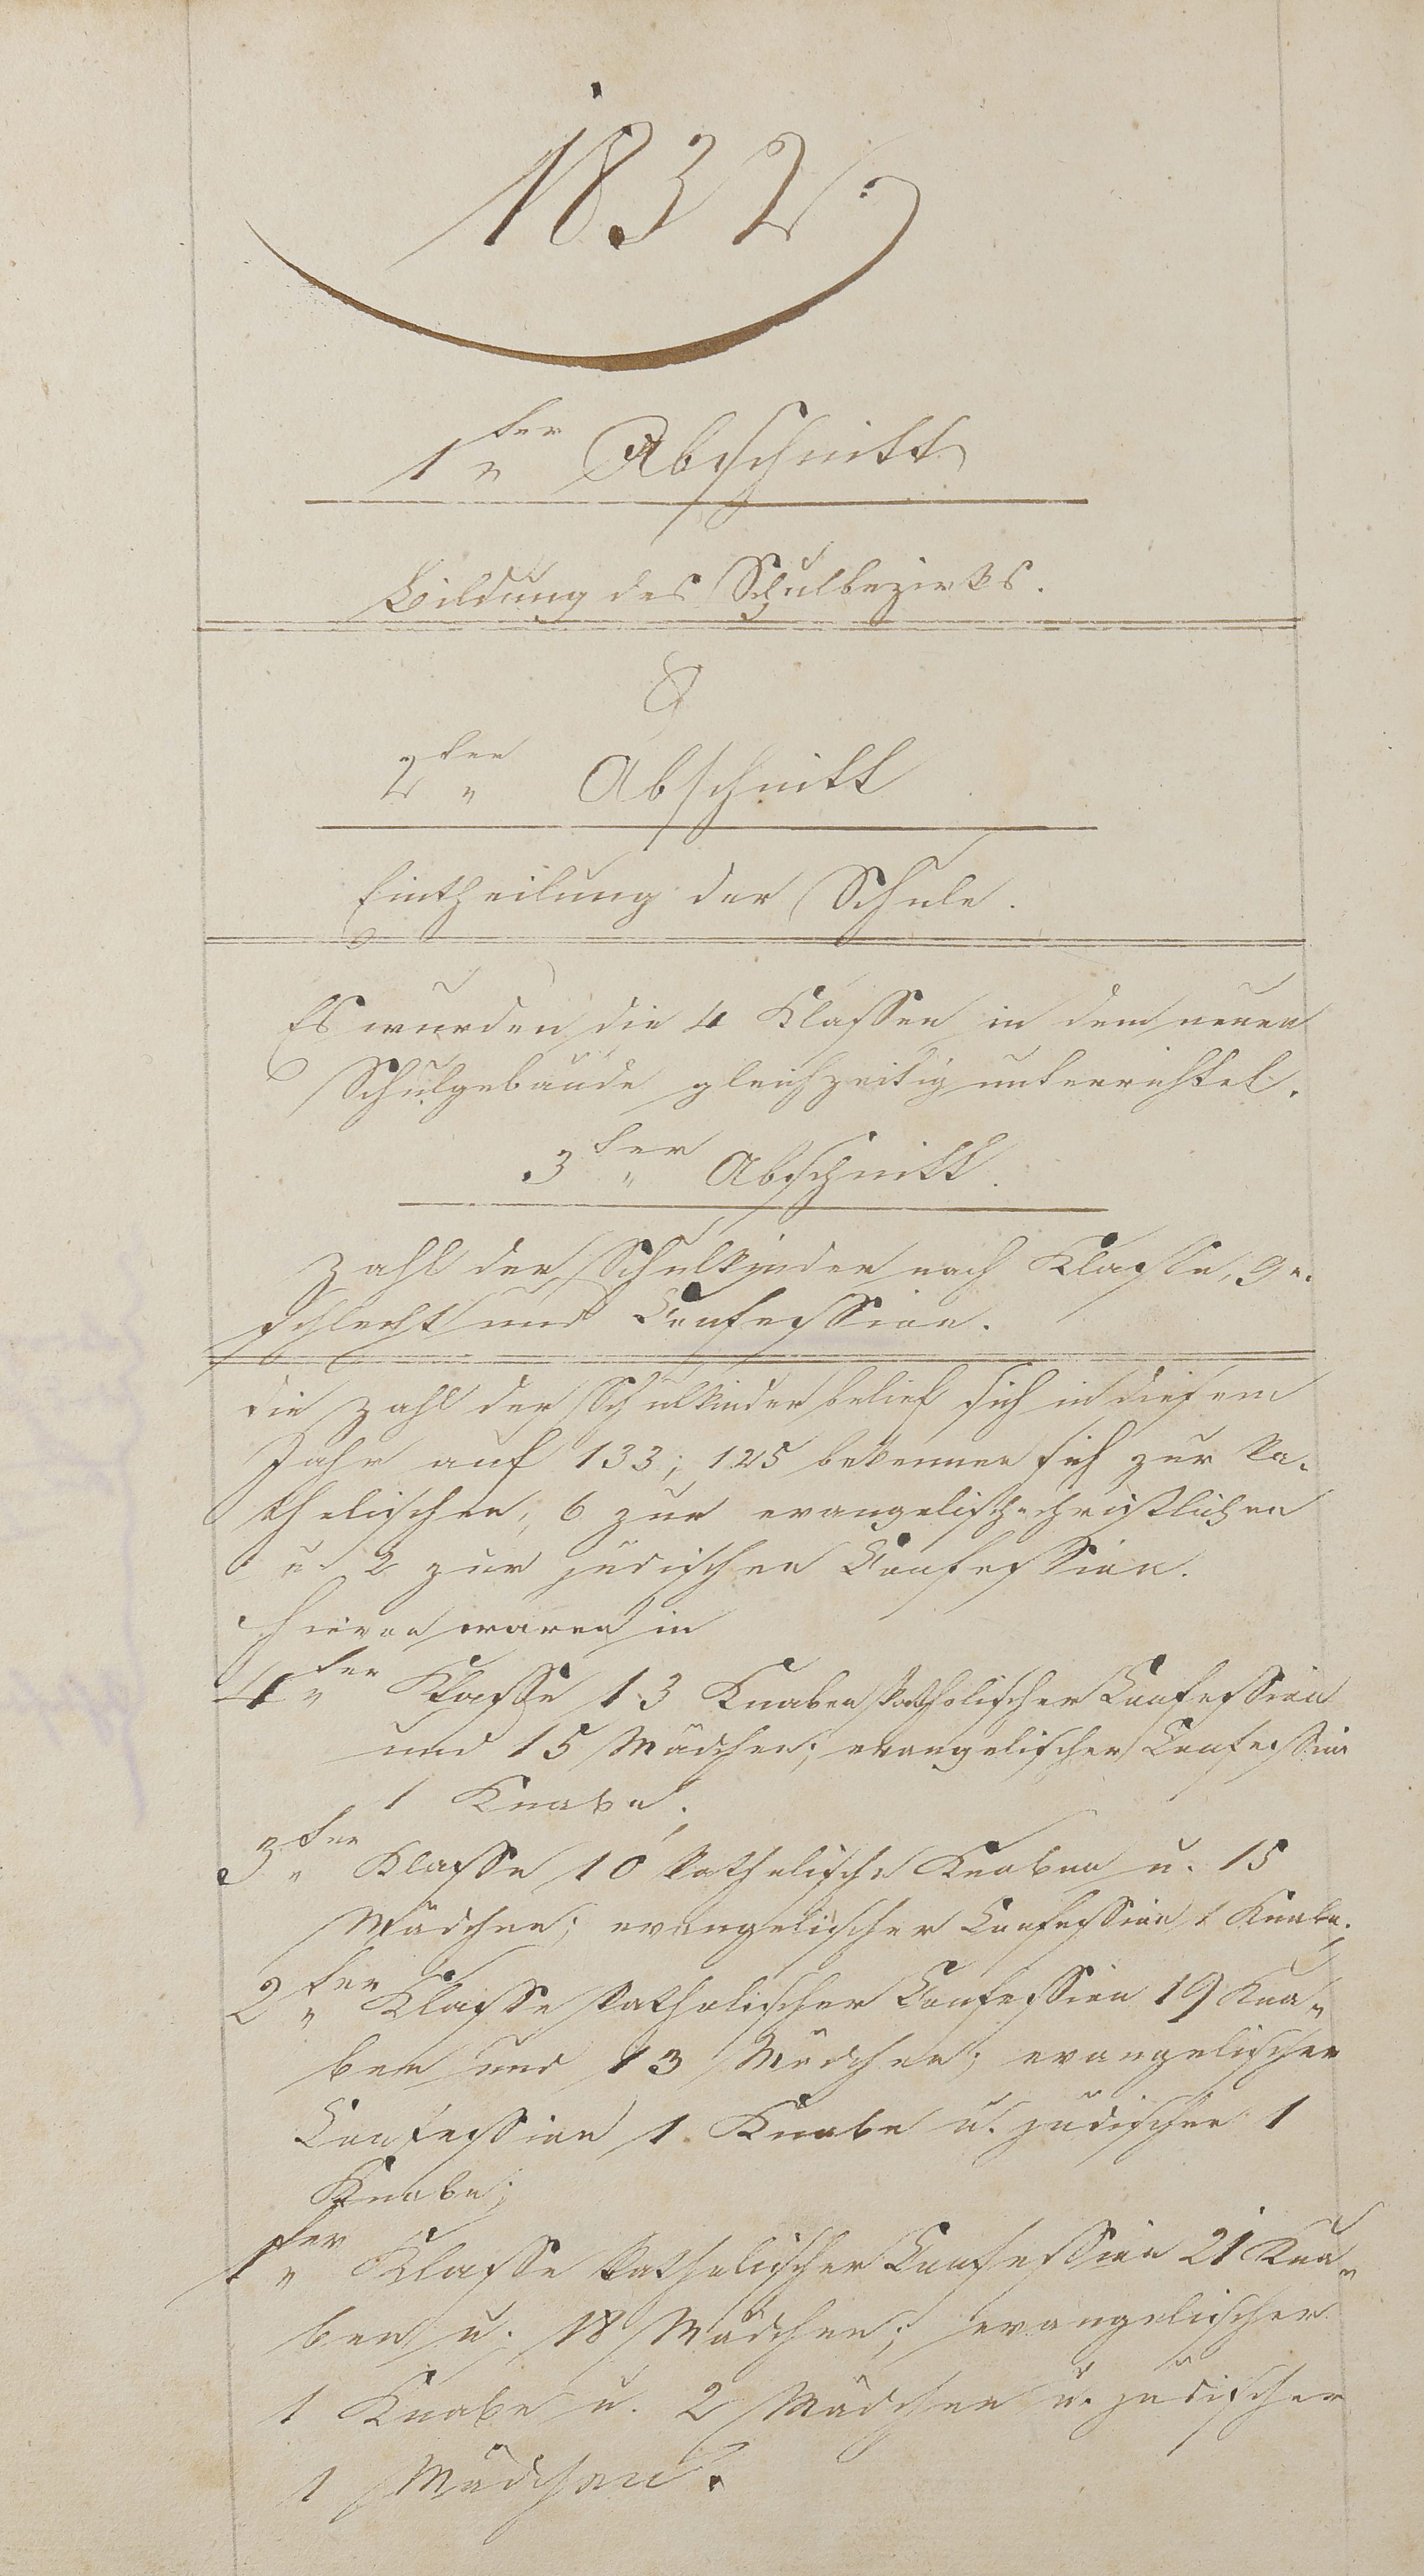 1832.
1ter „ Abschnitt
Bildung des Schulbezirks.
2ter „ Abschnitt
Eintheilung der Schule.
Es wurden die 4 Klassen in dem neuen
Schulgebäude gleichzeitig unterrichtet.
3ter „ Abschnitt.
Zahl der Schulkinder nach Klasse, Ge-
schlecht und Confession.
Die Zahl der Schulkinder belief sich in diesem
Jahr auf 133; 125 bekennen sich zur ka-
tholischen, 6 zur evangelisch-christlichen
u. 2 zur jüdischen Confession.
Hievon waren in
4ter „ Klasse 13 Knaben katholischer Confession
und 15 Mädchen; evangelischer Confession
1 Knabe;
3ter „ Klasse 10 katholische Knaben u. 15
Mädchen; evangelischer Confession 1 Knabe;
2ter „ Klasse katholischer Confession 19 Kna-
ben und 13 Mädchen; evangelischer
Confession 1 Knabe u. jüdischer 1
Knabe;
1ter „ Klasse katholischer Confession 21 Kna-
ben u. 18 Mädchen; evangelischer
1 Knabe u. 2 Mädchen u. jüdischer
1 Mädchen.